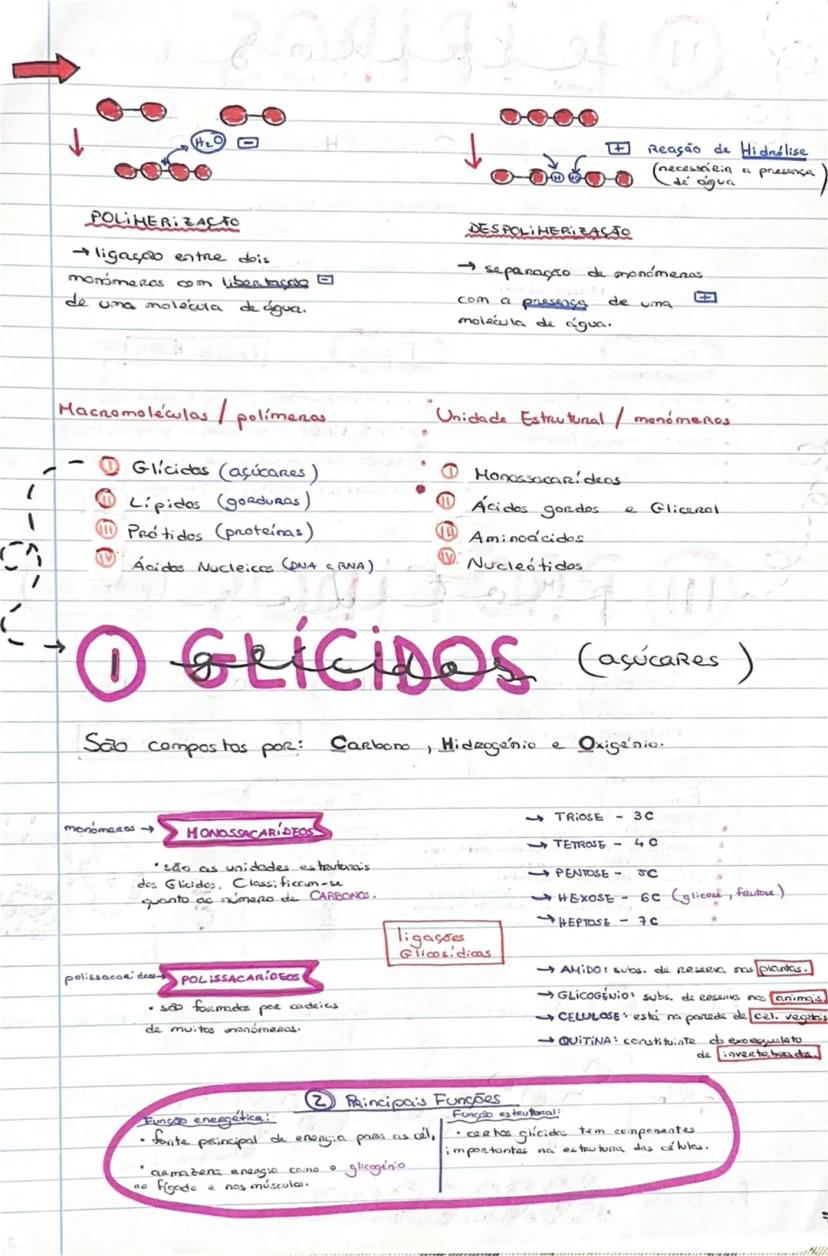 H2O -
+ Reação de Hidrólise
(necessária a presença
de água)
POLIMERIZAÇÃO
→ ligação entre dois
monómeros com libertação -
de uma molécula de água.
DESPOLIMERIZAÇÃO
→ separação de monómeros
com a presença de uma +
molécula de água.
Macromoléculas / polímeros
I Glícidos (açúcares)
II Lípidos (gorduras)
III Prótidos (proteínas)
IV Ácidos Nucleicos (DNA e RNA)
Unidade Estrutural / monómeros
I Monossacarídeos
II Ácidos gordos e Glicerol
III Aminoácidos
IV Nucleótidos
1 GLÍCIDOS (açúcares)
glícidos
São compostos por: Carbono, Hidrogénio e Oxigénio.
monómeros → MONOSSACARÍDEOS
• são as unidades estruturais
dos Glícidos. Classificam-se
quanto ao número de CARBONOS.
→ TRIOSE - 3C
→ TETROSE - 4C
→ PENTOSE - 5C
→ HEXOSE - 6C (glicose, frutose)
→ HEPTOSE - 7C
ligações
Glicosídicas
polissacarídeos → POLISSACARÍDEOS
• são formados por cadeias
de muitos monómeros.
→ AMIDO: subs. de reserva nas plantas.
→ GLICOGÉNIO: subs. de reserva nos animais
→ CELULOSE: está na parede de cel. vegetais
→ QUITINA: constituinte do exoesqueleto
de invertebrados.
2 Principais Funções
Função energética:
• fonte principal de energia para as cél.
• armazena energia como o glicogénio
no fígado e nos músculos.
Função estrutural:
• certos glícidos tem componentes
importantes na estrutura das células.